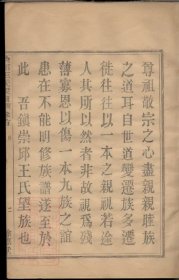 尊祖敬宗之心盡親親睦族
之道耳自世道變遷族多遷
徙往往以一本之親視若途
人其所以然者非故視爲殘
薄寡恩以傷一本九族之誼
患在不能明修族譜遂至於
此 吾鎮崇邱王氏望族也